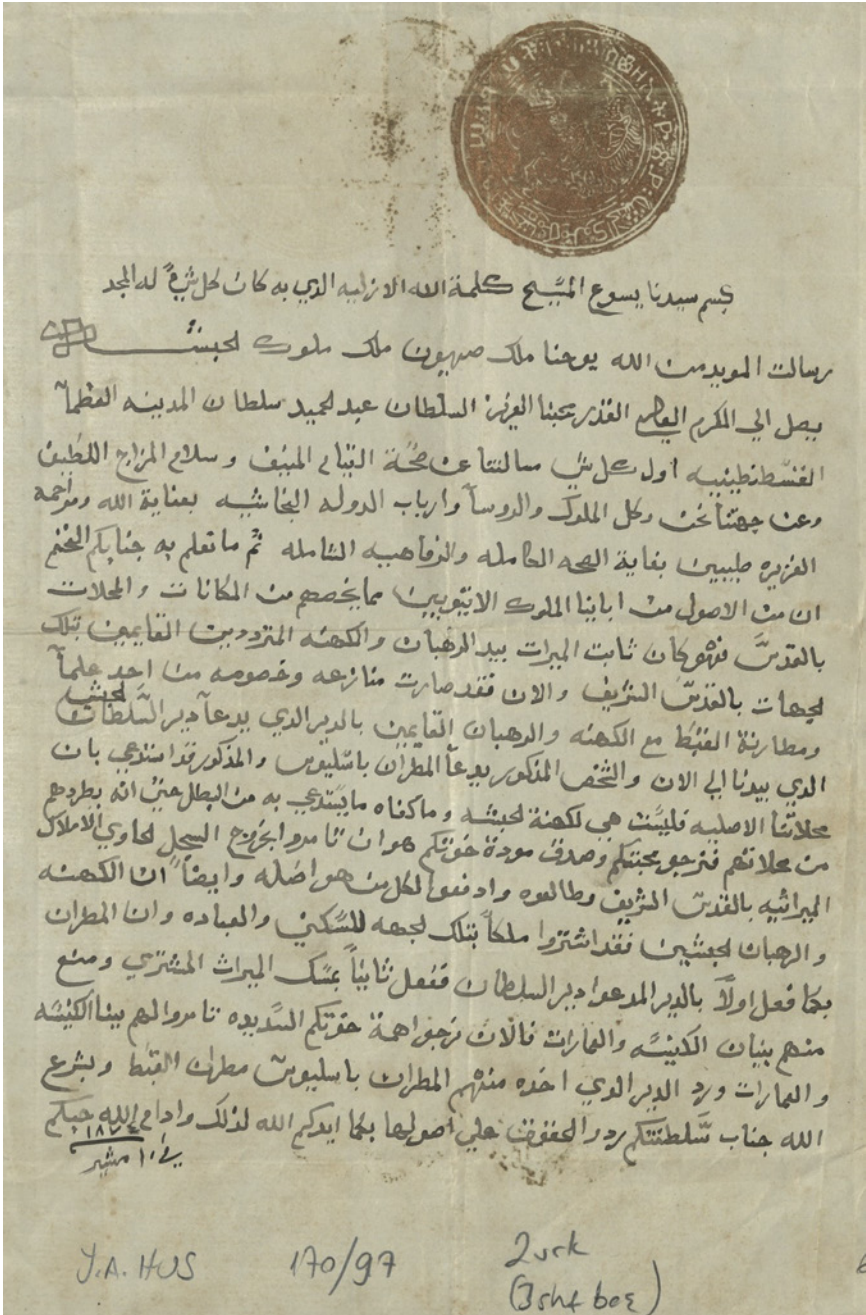 بسم سيدنا يسوع المسيح كلمة الله الازليه الذي به كان كل شيءً له المجد
رسالت المويد من الله يوحنا ملك صهيون ملك ملوك الحبشـــــه
يصل الي المكرم القدير محبنا العزيز السلطان عبد الحميد سلطان المدينه العظما
القسطنطينيه اول كل شي سالنتا عن صحة المنيف وسلام المزاج اللطيف
وعن جهتنا نحن وكل الملوك والروساً وارباب الدوله النجاشيه بعناية الله ومراحمه
الغزيره طيبين بغاية الصحه الكامله والرفاهيه الشامله ثم ما نعلم به جنابكم الفخم
ان من الاصول من اباينا الملوك الاتيوبيين مما يخصهم من المكانات والمحلات
بالقدس فهو كان ثابت الميرات بيد الرهبان والكهنه المترددين القايمين بتلك
لجهات بالقدس الشريف والان فقد صارت منازعه وخصومه من احد علماً
ومطارنة القبط مع الكهنه والرهبان القايمين بالدير الذي يدعاً دير السلطان لحبش
الذي بيدنا الي الان والشخص المذكور يدعاً المطران باسليوس والمذكور قد استدعي بان
محلاتنا الاصليه فليست هي لكهنة لحبشه وما كفاه ما يستدعي به من البطل حتي انه يطردهم
من محلاتهم فنرجو محبتكم وصدق مودة خوتكم هو ان تامروا بخروج السجل لحاوي الاملاك
الميراثيه بالقدس الشريف وطالعوه وادفعوا لكل من هو اصله وايضاً ان الكهنه
والرهبان لحبشين فقد اشتروا ملكاً بتلك لجهه للسكني والعباده وان المطران
بما فعل اولاً بالدير المدعوا دير السلطان ففعل ثانياً بمسك الميراث المشتري ومنع
منهم بنيان الكنيسه والعمارات فالان نرجوا همة خوتكم السديده تامروا لهم ببنا الكنيسه
والعمارات ورد الدير الذي اخذه منهم المطران باسليوس مطران القبط وبشرع
الله جناب سلطنتكم ردو الحقوق علي اصولها بما ايدكم الله لذلك وادام الله حبكم
في ١٠ مشير
Y.A. HUS 170/97